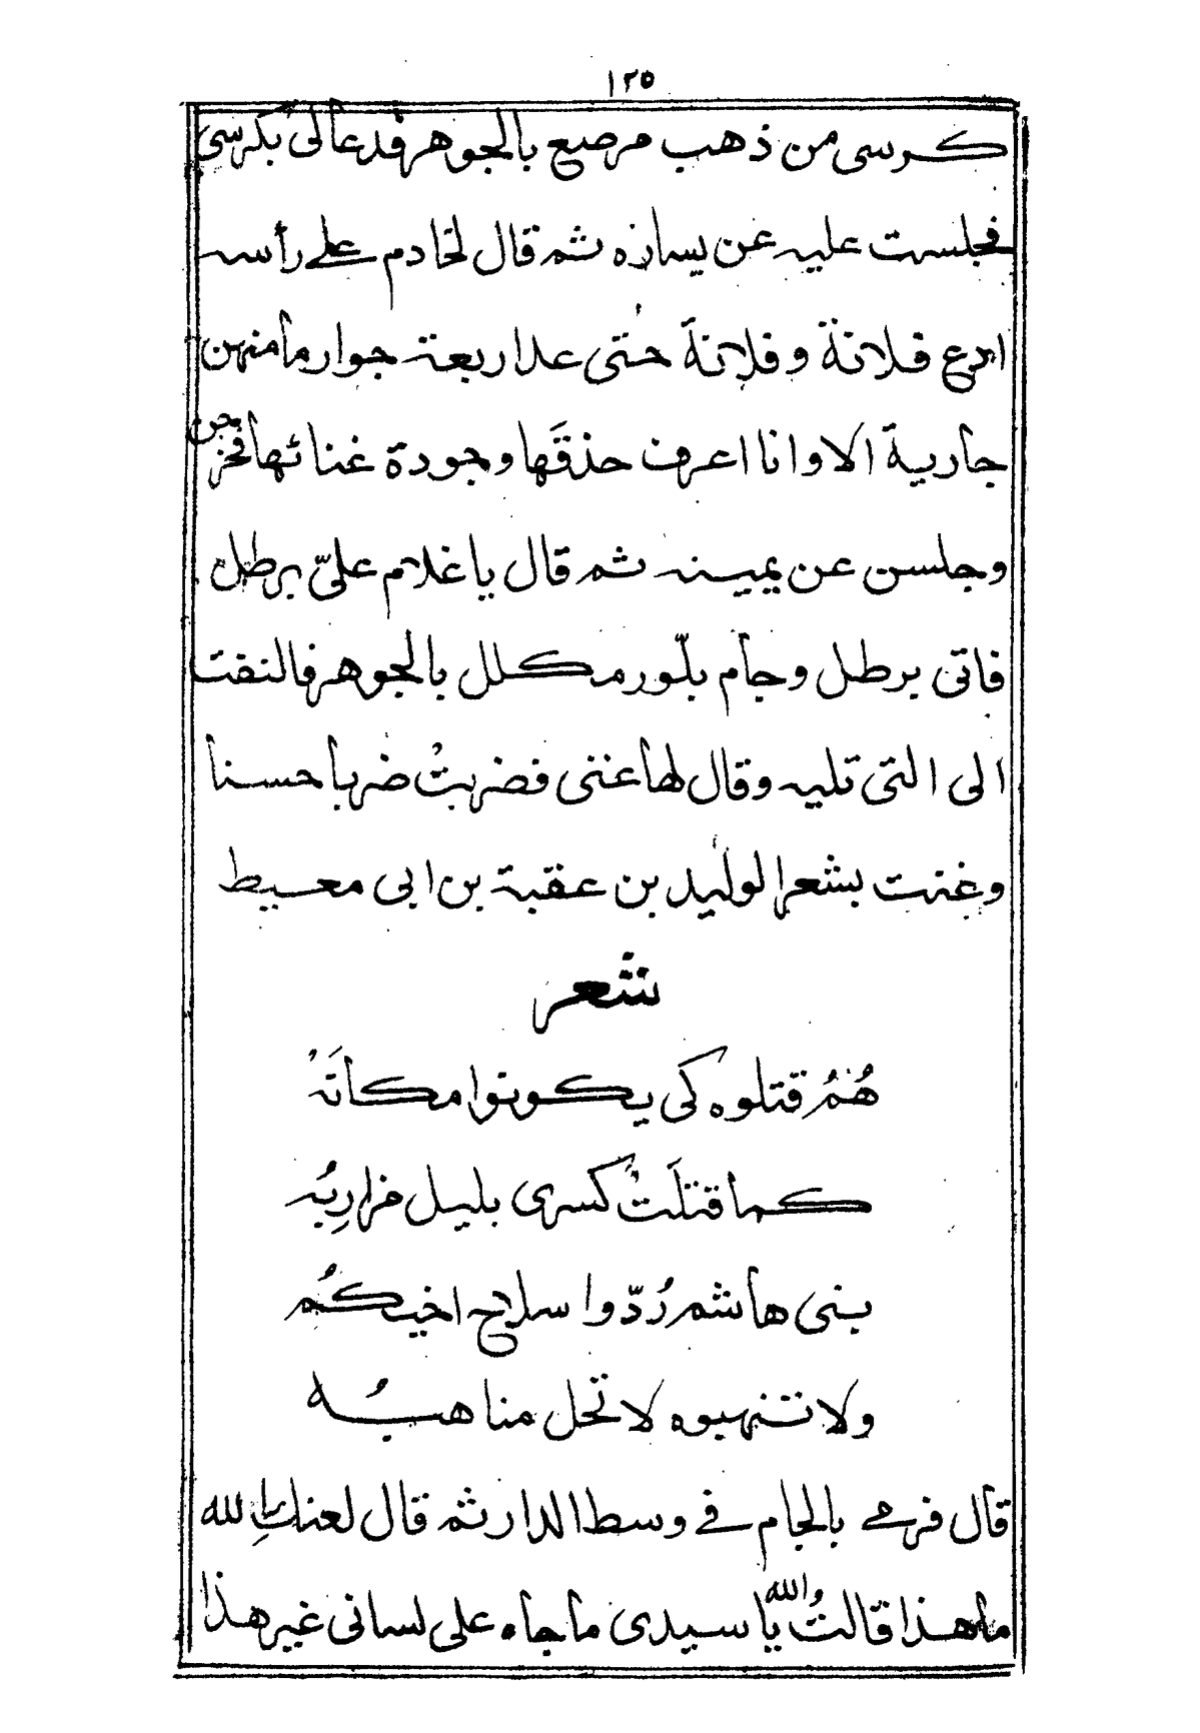 ١٢٥
كرسى من ذهب مرصع بالجوهر فدعا لى بكرسى
فجلست عليه عن يساره ثم قال لخادم على رأسه
ادع فلانة وفلانة حتى عد اربعة جوار ما منهن
جارية الا وانا اعرف حذقَها وجودة غنائها فخرجن
وجلسن عن يمينه ثم قال يا غلام علىّ برطل
فاتى برطل وجام بلّور مكلل بالجوهر فالتفت
الى التى تليه وقال لها غنى فضربتْ ضربا حسنا
وغنت بشعر الوليد بن عقبة بن ابى معيط
شعر
هُمُ قتلوه كى يكونوا مكانَهُ
كما قتلَتْ كسرى بليل مرازِبُه
بنى هاشم رُدّوا سلاح اخيكُم
ولا تنهبوه لا تحل مناهبُه
قال فرمى بالجام فى وسط الدار ثم قال لعنكِ الله
ما هذا قالتْ والله يا سيدى ما جاء على لسانى غير هذا